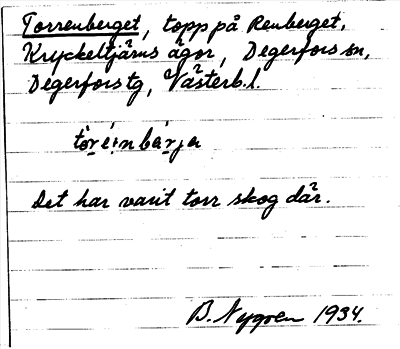 Torrenberget, topp på Renberget,
Kryckeltjärns ägor, Degerfors sn,
Degerfors tg, Västerb. l.
tòreinbárja
Det har varit torr skog där.
B. Nygren 1934.